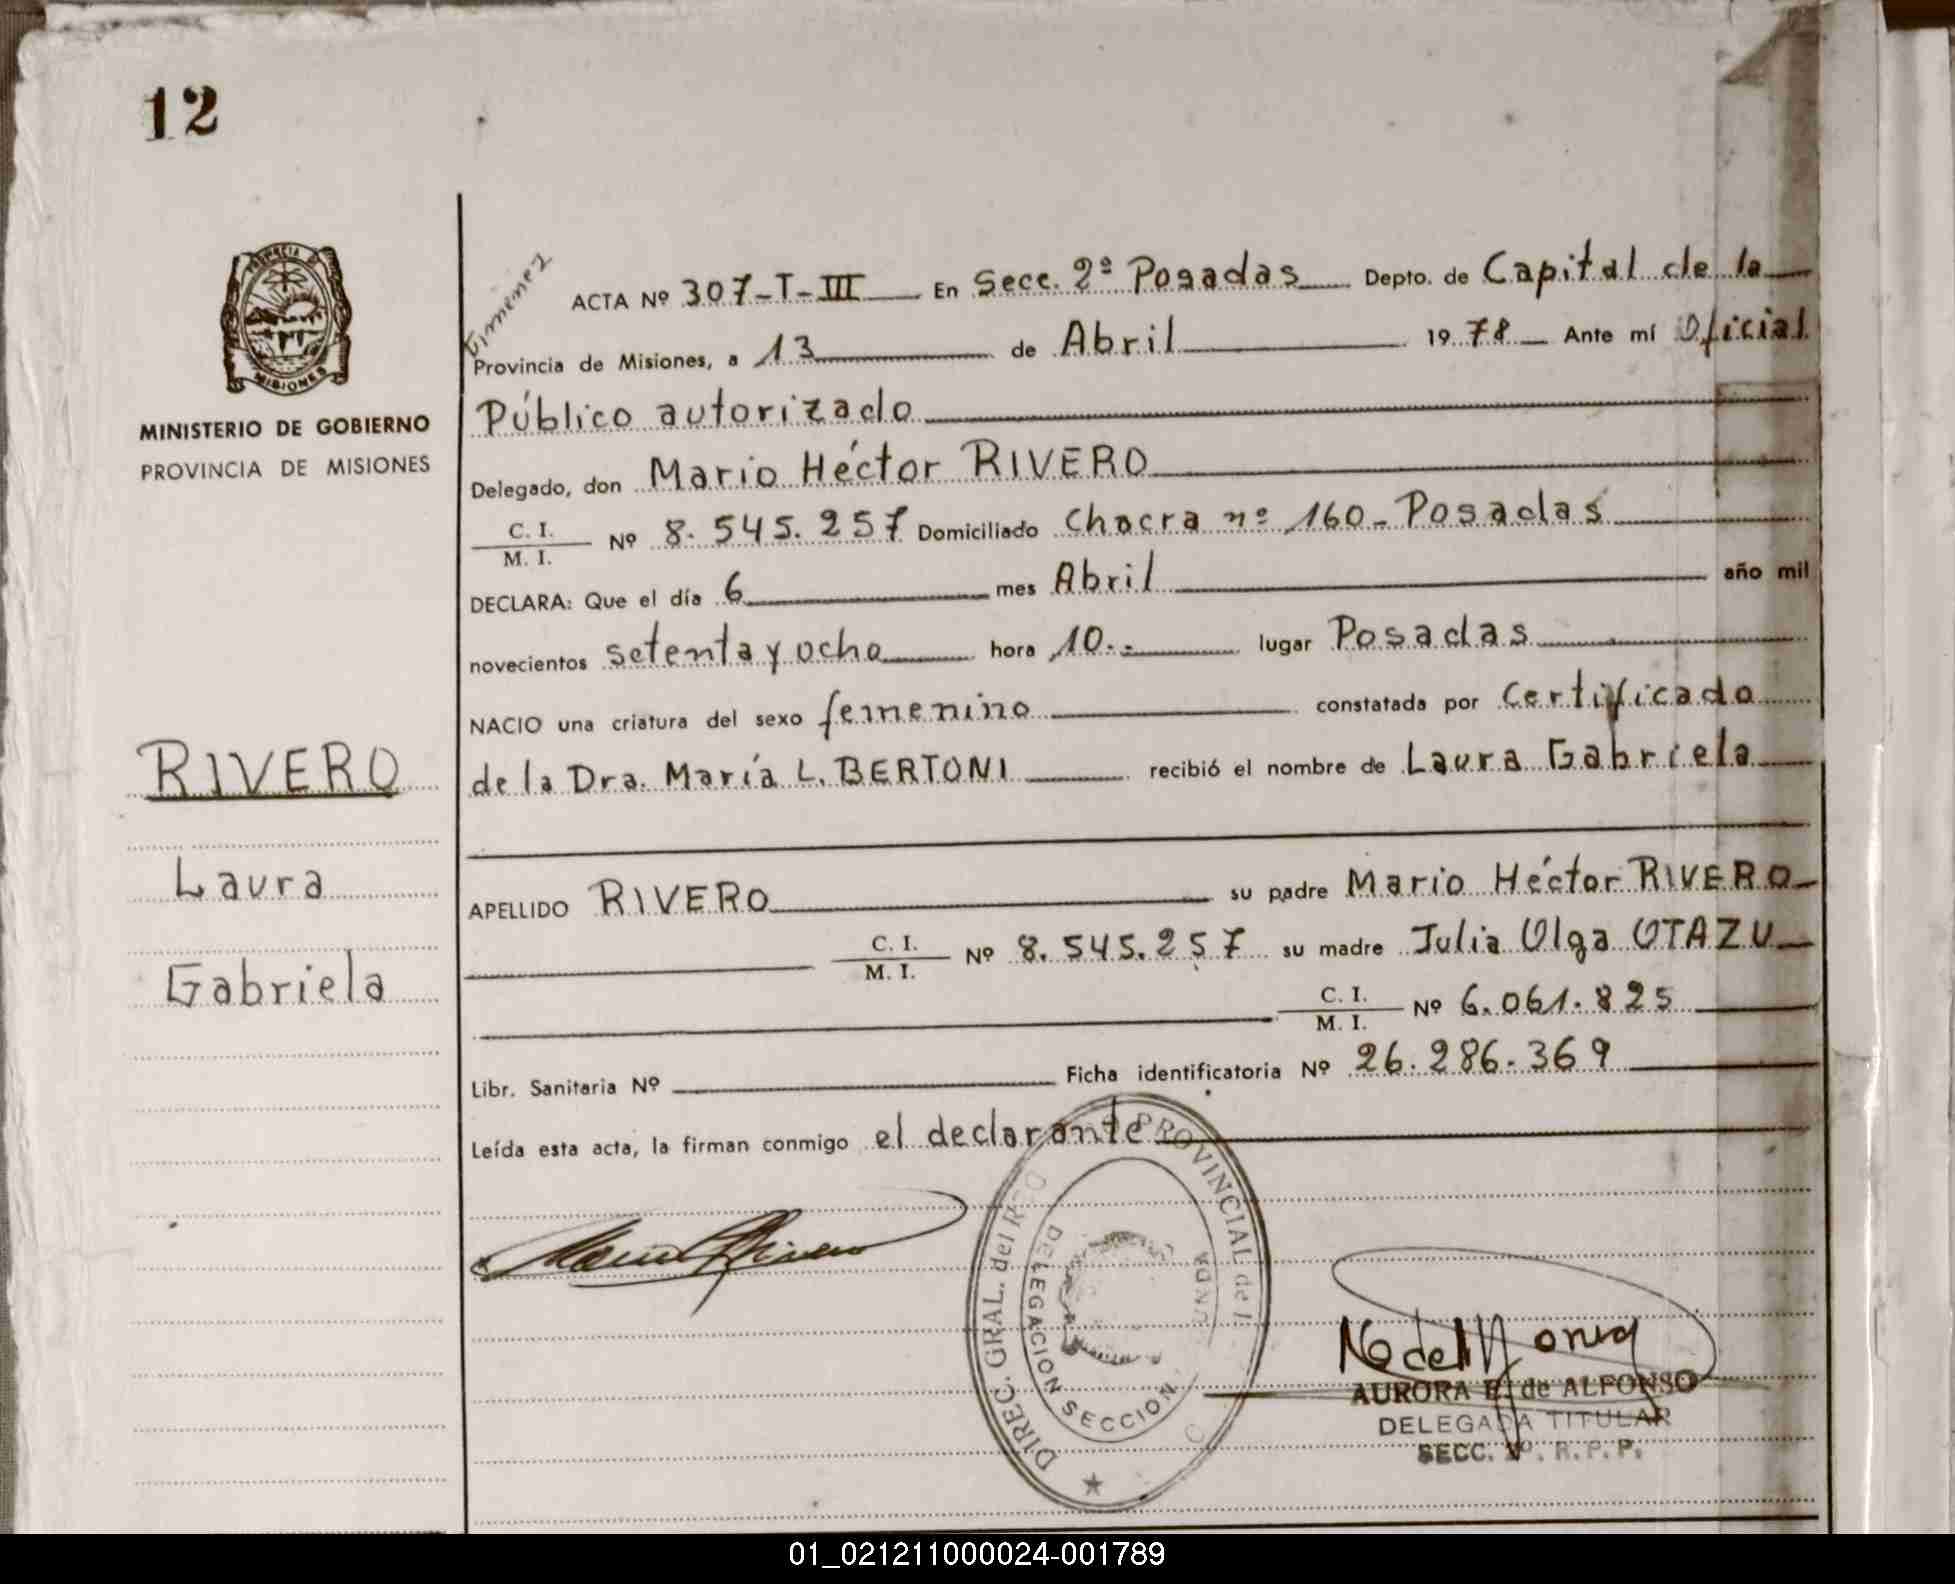 12
PROVINCIA DE
MISIONES
MINISTERIO DE GOBIERNO
PROVINCIA DE MISIONES
RIVERO
Laura
Gabriela
Gimenez
ACTA Nº 307-T-III En Secc. 2ª Posadas Depto. de Capital de la
Provincia de Misiones, a 13 de Abril 1978 Ante mí Oficial
Público autorizado
Delegado, don Mario Héctor RIVERO
C. I.
M. I. Nº 8.545.257 Domiciliado Chacra nº 160-Posadas
DECLARA: Que el día 6 mes Abril año mil
novecientos setenta y ocho hora 10.- lugar Posadas
NACIO una criatura del sexo femenino constatada por Certificado
de la Dra. María L. BERTONI recibió el nombre de Laura Gabriela
APELLIDO RIVERO su padre Mario Héctor RIVERO
C. I.
M. I. Nº 8.545.257 su madre Julia Olga OTAZU
C. I.
M. I. Nº 6.061.825
Libr. Sanitaria Nº Ficha identificatoria Nº 26.286.369
Leída esta acta, la firman conmigo el declarante
DIREC. GRAL. del PROVINCIAL de
DELEGACION SECCION
AURORA de ALFONSO
DELEGADA TITULAR
SECC. R.P.P.
01_021211000024-001789